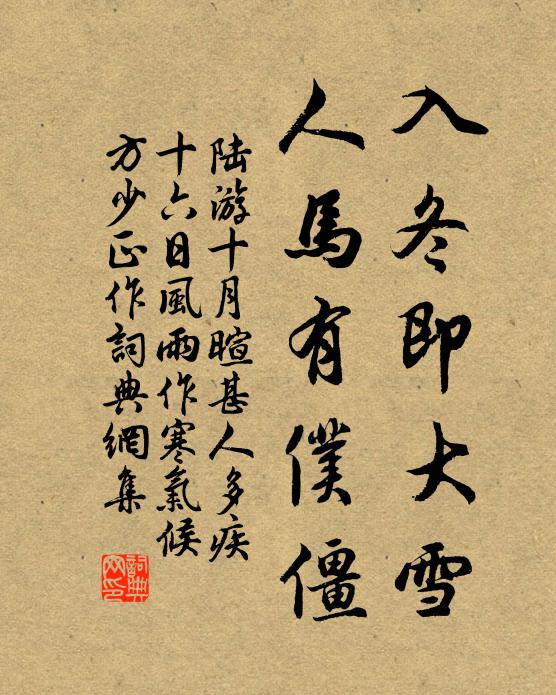 入冬即大雪
人馬有僕僵
陆游十月暄甚人多疾
十六日風雨作寒氣候
方少正作詞典網集
詞典
网印